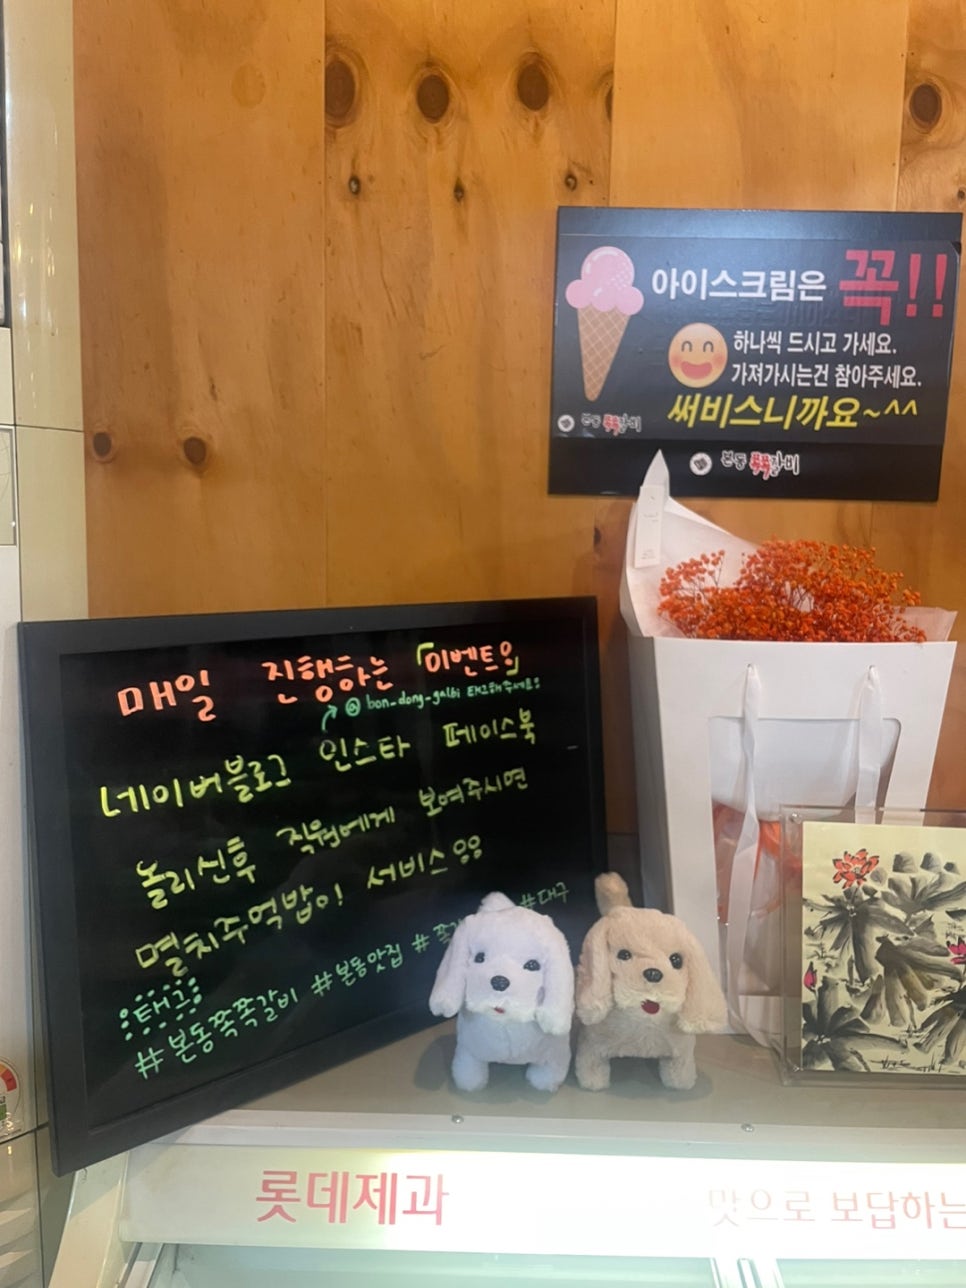 아이스크림은 꼭!!
하나씩 드시고 가세요.
가져가시는건 참아주세요.
써비스니까요~^^
본동 쪽쪽갈비
본동 쪽쪽갈비
매일 진행하는 「이벤트요」
@ bon_dong_galbi 태그해주세요:
네이버블로그 인스타 페이스북
올리신후 직원에게 보여주시면
멸치주먹밥이 서비스
태그
#본동쪽쪽갈비 #본동맛집 # #대구
롯데제과
맛으로 보답하는